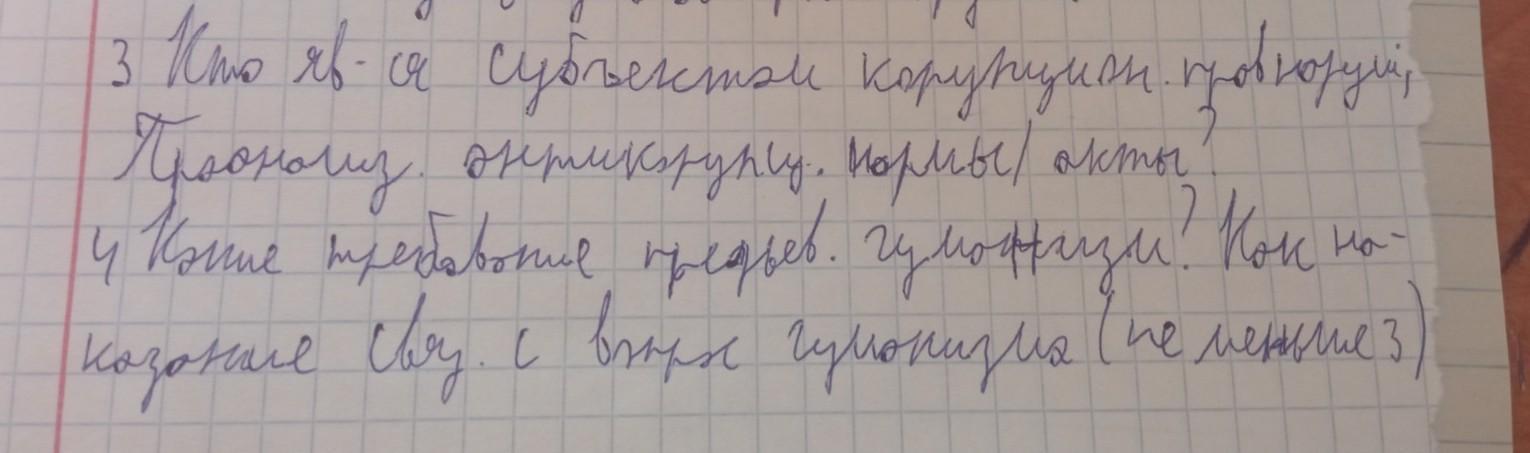 3 Кто яв-ся субъектом корупцион. правнаруш;
Проанализ. антикорупц. нормы/акты?
4 Какие требование предъев. гуманизм? Как на-
казание связ. с вопрос гуманизма (не меньше 3)